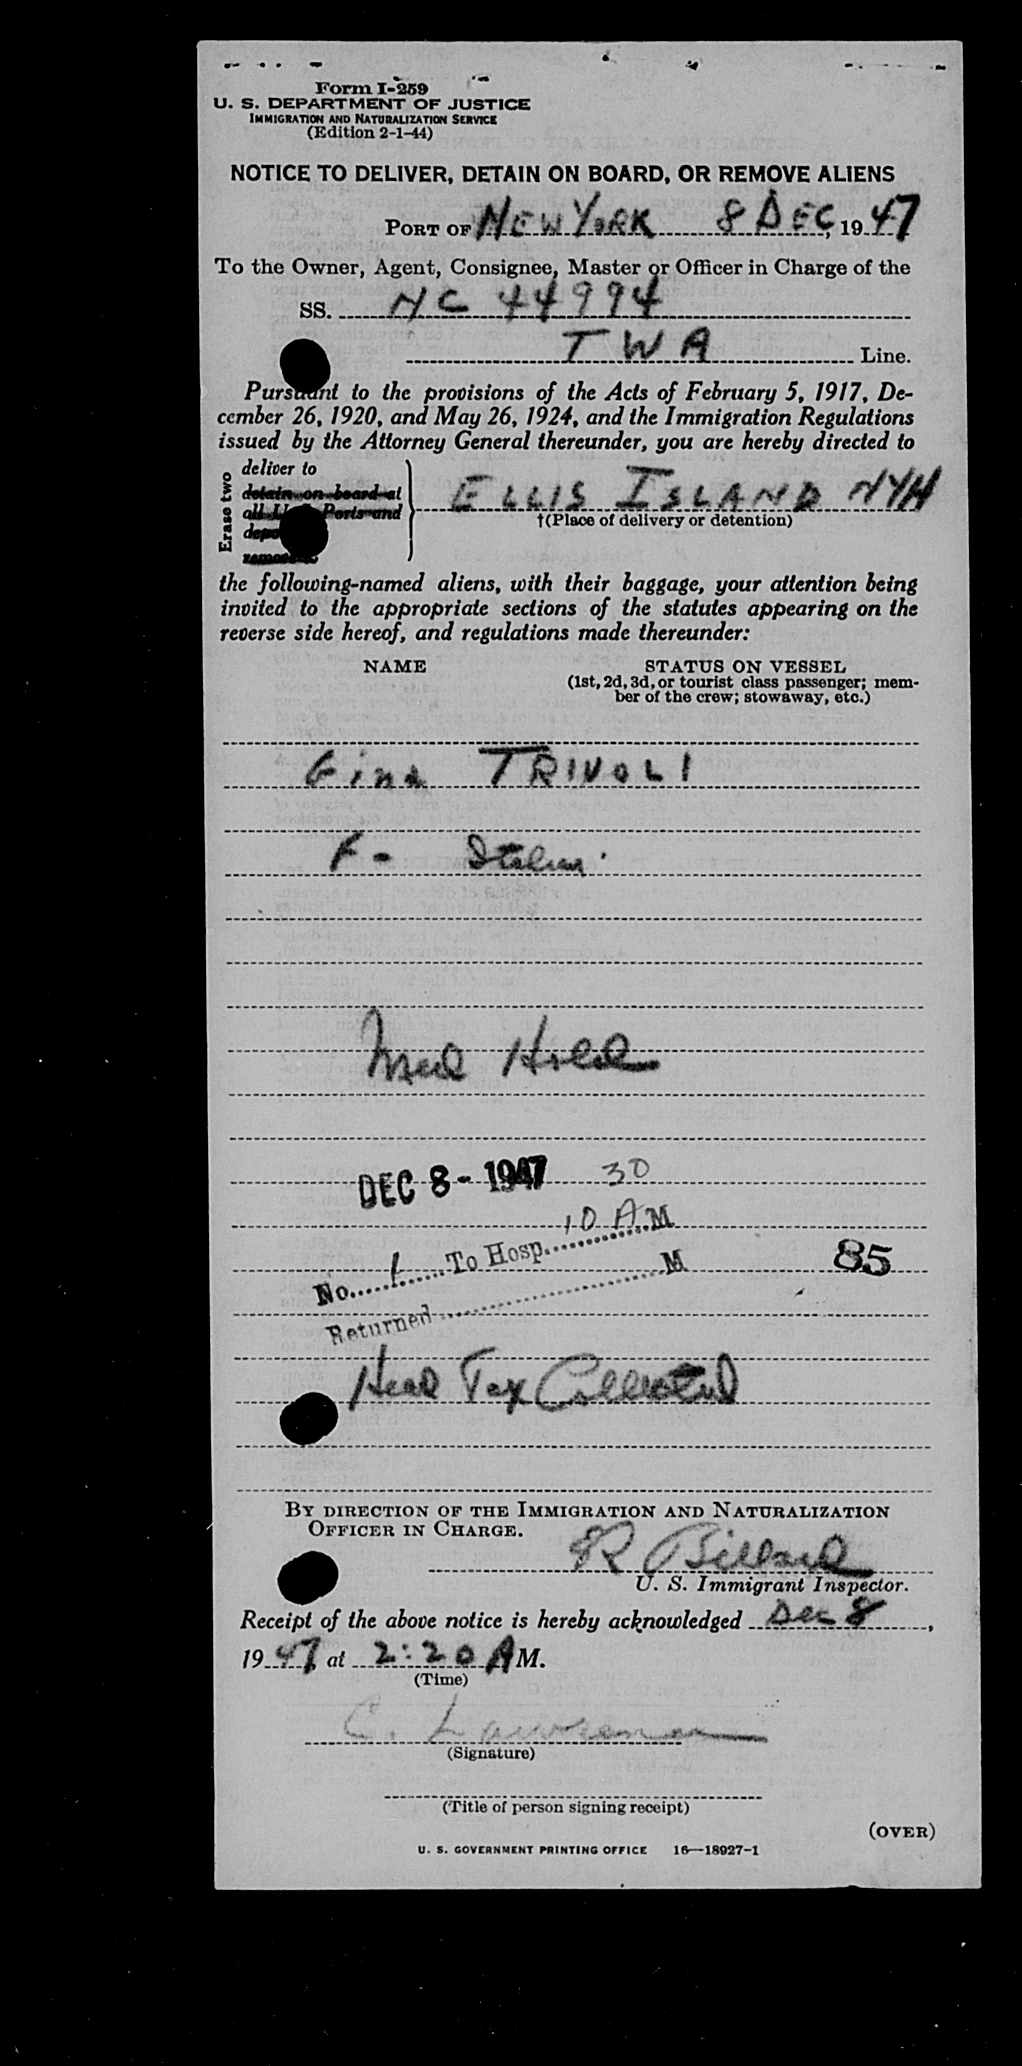 Form I-259
U. S. DEPARTMENT OF JUSTICE
IMMIGRATION AND NATURALIZATION SERVICE
(Edition 2-1-44)
NOTICE TO DELIVER, DETAIN ON BOARD, OR REMOVE ALIENS
PORT OF NEW YORK 8 DEC, 1947
To the Owner, Agent, Consignee, Master or Officer in Charge of the
SS. NC 44994
TWA Line.
Pursuant to the provisions of the Acts of February 5, 1917, De-
cember 26, 1920, and May 26, 1924, and the Immigration Regulations
issued by the Attorney General thereunder, you are hereby directed to
Erase two
deliver to
detain on board at
all U. S. Ports and
remove to
ELLIS ISLAND NYH
†(Place of delivery or detention)
the following-named aliens, with their baggage, your attention being
invited to the appropriate sections of the statutes appearing on the
reverse side hereof, and regulations made thereunder:
NAME STATUS ON VESSEL
(1st, 2d, 3d, or tourist class passenger; mem-
ber of the crew; stowaway, etc.)
Gina TRIVOLI
F - Italian
Med Hold
DEC 8 - 1947 30
No. 1 To Hosp. 10 A M
85
Returned M
Head Tax Collected
BY DIRECTION OF THE IMMIGRATION AND NATURALIZATION
OFFICER IN CHARGE.
R Billard
U. S. Immigrant Inspector.
Receipt of the above notice is hereby acknowledged Dec 8,
1947, at 2:20 A M.
(Time)
C. Lawrence
(Signature)
(Title of person signing receipt)
(OVER)
U. S. GOVERNMENT PRINTING OFFICE 16—18927-1